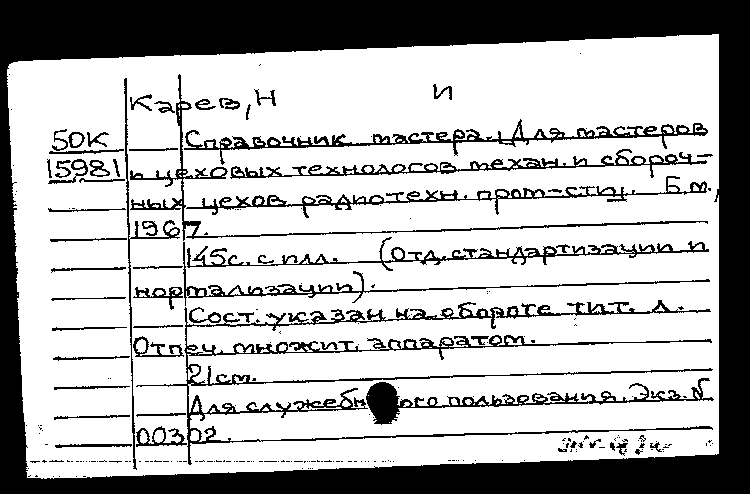 Карев, Н И
50К Справочник мастера. Для мастеров
15981 и цеховых технологов механ. и сбороч-
ных цехов радиотехн. пром-сти. Б.м.,
1967.
145с. с илл. (Отд. стандартизации и
нормализации).
Сост. указан на обороте тит. л.
Отпеч. множит. аппаратом.
21см.
Для служебного пользования. Экз. №
00302.